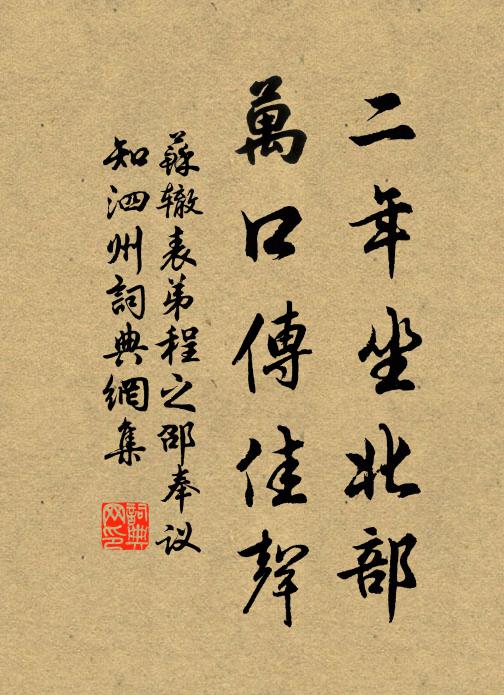 二年坐北部
萬口傳佳聲
蘇辙表弟程之邵奉议
知泗州詞典網集
詞典网印